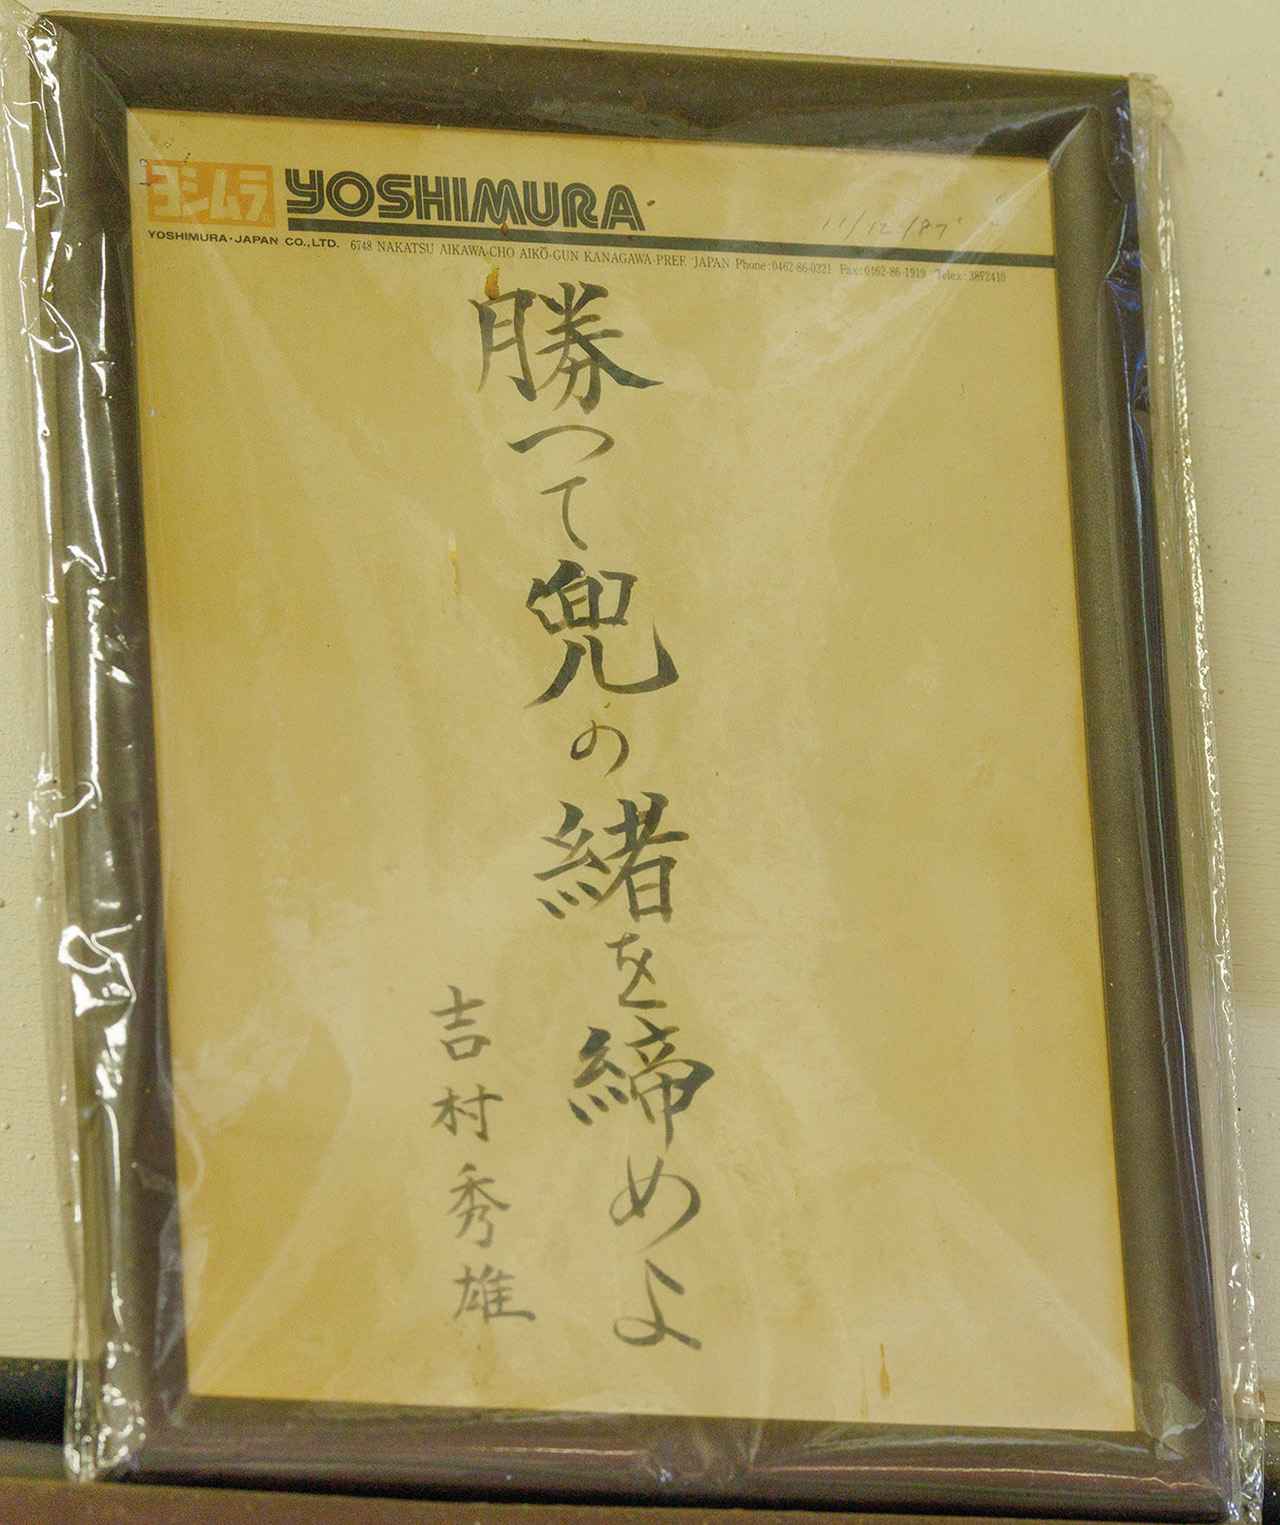 ヨシムラ YOSHIMURA
11/12/87'
YOSHIMURA・JAPAN CO.,LTD. 6748 NAKATSU AIKAWA-CHO AIKŌ-GUN KANAGAWA-PREF. JAPAN Phone:0462-86-0321 Fax:0462-86-1919 Telex:3872410
勝つて兜の緒を締めよ
吉村秀雄